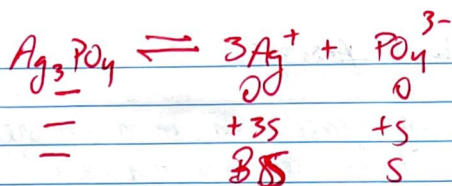 Ag₃PO₄ ⇌ 3Ag⁺ + PO₄³⁻
— 0 0
— +3s +s
— 3s s